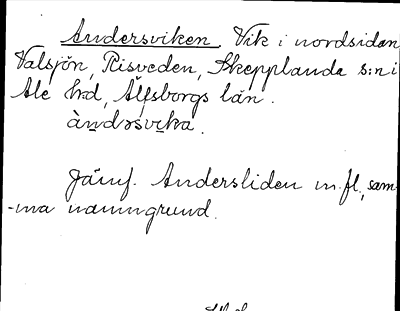 Andersviken. Vik i nordsidan
Valsjön, Risveden, Skepplanda s:n i
Ale hd, Älfsborgs län.
àndəsvika.
Jämf. Andersliden m.fl., sam-
-ma namngrund.